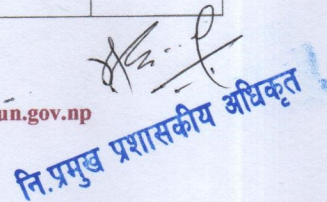 un.gov.np
नि. प्रमुख प्रशासकीय अधिकृत